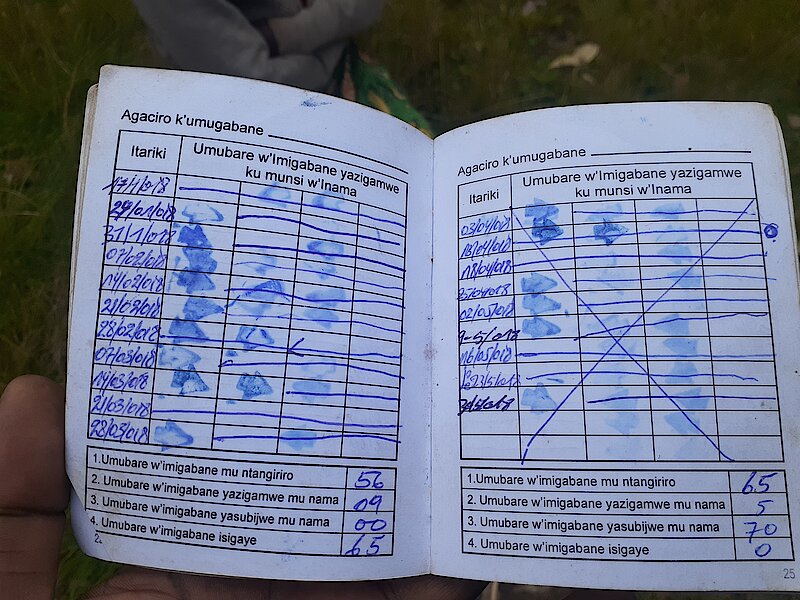 Agaciro k'umugabane
Itariki
Umubare w'Imigabane yazigamwe
ku munsi w'Inama
31/1/018
07/02/018
14/02/018
21/02/018
28/02/018
07/03/018
14/03/018
21/03/018
28/03/018
1.Umubare w'imigabane mu ntangiriro 56
2. Umubare w'imigabane yazigamwe mu nama 09
3. Umubare w'imigabane yasubijwe mu nama 00
4. Umubare w'imigabane isigaye 65
Agaciro k'umugabane
Itariki
Umubare w'Imigabane yazigamwe
ku munsi w'Inama
03/04/018
18/04/018
25/04/018
02/05/018
9-5/018
16/05/018
23/5/018
1.Umubare w'imigabane mu ntangiriro 65
2. Umubare w'imigabane yazigamwe mu nama 5
3. Umubare w'imigabane yasubijwe mu nama 70
4. Umubare w'imigabane isigaye 0
25